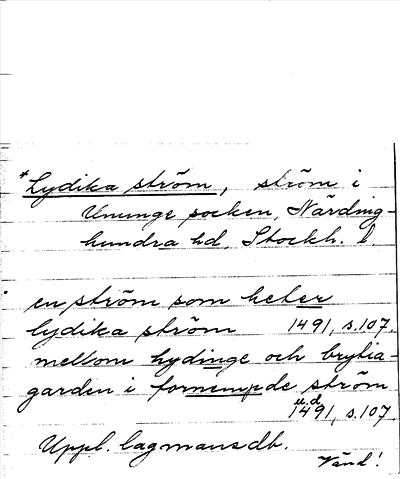 *Lydika ström, ström i
Ununge socken, Närding-
hundra hd, Stockh. l
en ström som heter
lydika ström 1491, s. 107.
mellom hydinge och brytia-
garden i fornempde ström
u.d.
1491, s. 107.
Uppl. lagmansdb.
Vänd!